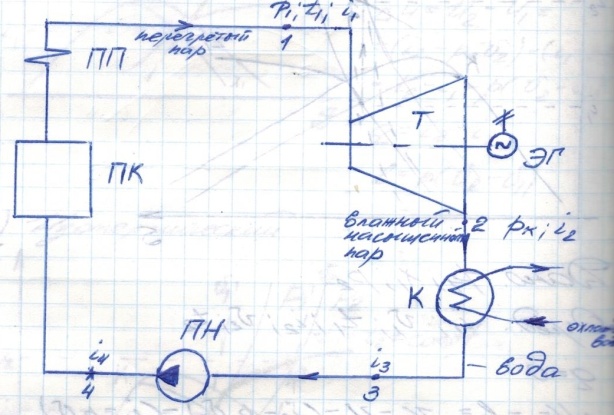 P₁; t₁; i₁
перегретый
пар
1
ПП
Т
~
ЭГ
ПК
влажный
насыщенный
пар
2
Pк; i₂
К
ПН
i₄
4
i₃
3
вода